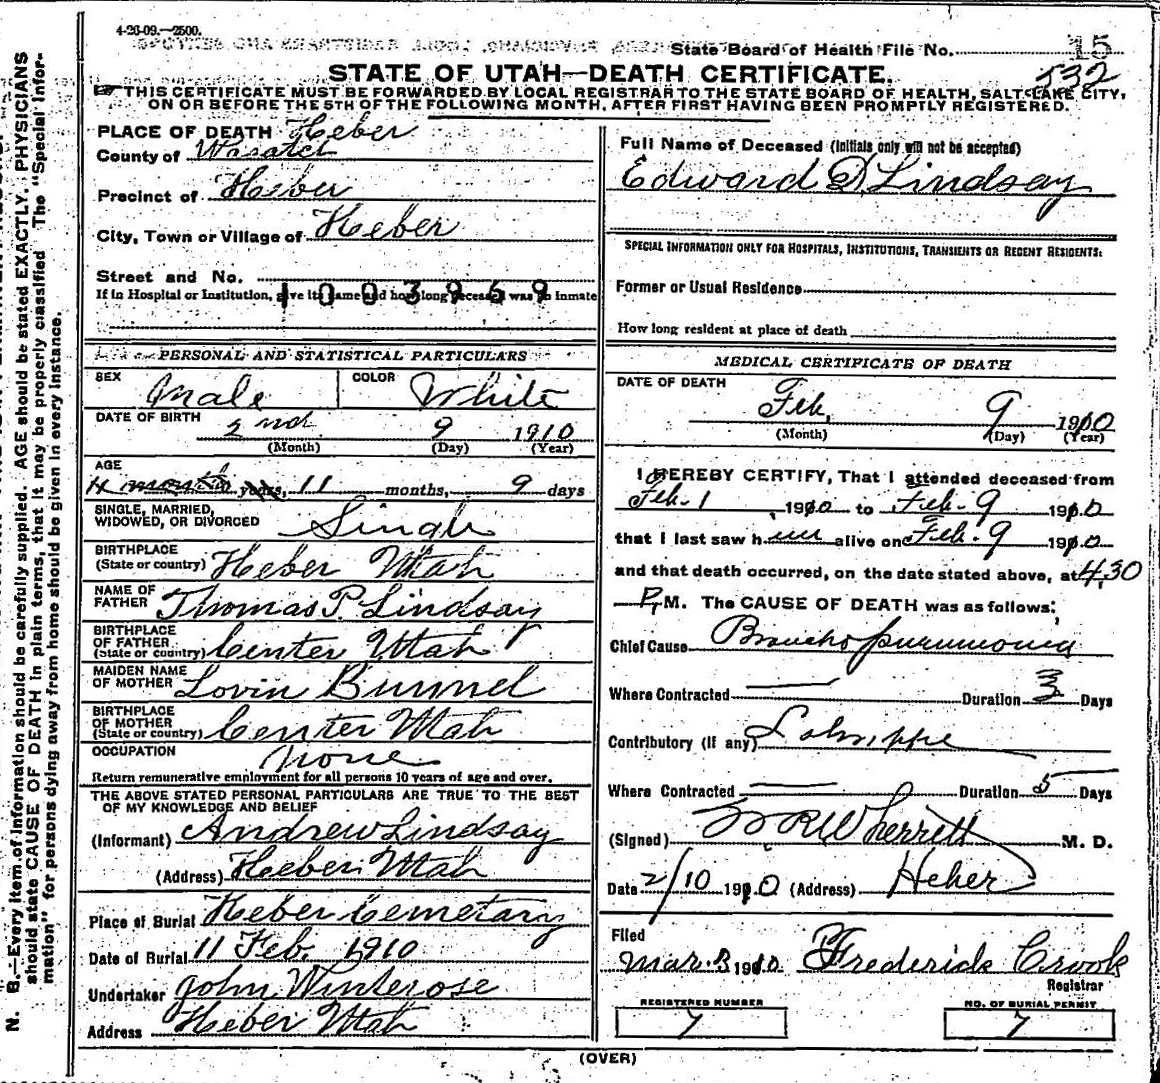 4-26-09.—2500.
State Board of Health File No. 15
532
STATE OF UTAH—DEATH CERTIFICATE.
THIS CERTIFICATE MUST BE FORWARDED BY LOCAL REGISTRAR TO THE STATE BOARD OF HEALTH, SALT LAKE CITY,
ON OR BEFORE THE 5TH OF THE FOLLOWING MONTH, AFTER FIRST HAVING BEEN PROMPTLY REGISTERED.
PLACE OF DEATH Heber
County of Wasatch
Precinct of Heber
City, Town or Village of Heber
Street and No.
1003969
If in Hospital or Institution, give its name and how long deceased was an inmate
PERSONAL AND STATISTICAL PARTICULARS
SEX Male COLOR White
DATE OF BIRTH 2nd 9 1910
(Month) (Day) (Year)
AGE
4 months years, 11 months, 9 days
SINGLE, MARRIED,
WIDOWED, OR DIVORCED Single
BIRTHPLACE
(State or country) Heber Utah
NAME OF
FATHER Thomas P. Lindsay
BIRTHPLACE
OF FATHER
(State or country) Center Utah
MAIDEN NAME
OF MOTHER Lovin Bunnel
BIRTHPLACE
OF MOTHER
(State or country) Center Utah
OCCUPATION None
Return remunerative employment for all persons 10 years of age and over.
THE ABOVE STATED PERSONAL PARTICULARS ARE TRUE TO THE BEST
OF MY KNOWLEDGE AND BELIEF
(Informant) Andrew Lindsay
(Address) Heber Utah
Place of Burial Heber Cemetary
Date of Burial 11 Feb. 1910
Undertaker John Winterose
Address Heber Utah
Full Name of Deceased (Initials only will not be accepted)
Edward D Lindsay
SPECIAL INFORMATION ONLY FOR HOSPITALS, INSTITUTIONS, TRANSIENTS OR RECENT RESIDENTS:
Former or Usual Residence
How long resident at place of death
MEDICAL CERTIFICATE OF DEATH
DATE OF DEATH
Feb. 9 1910
(Month) (Day) (Year)
I HEREBY CERTIFY, That I attended deceased from
Feb. 1 1910 to Feb. 9 1910
that I last saw him alive on Feb. 9 1910
and that death occurred, on the date stated above, at 4.30
P. M. The CAUSE OF DEATH was as follows:
Chief Cause Broncho pneumonia
Where Contracted — Duration 3 Days
Contributory (if any) LaGrippe
Where Contracted — Duration 5 Days
(Signed) W R Wherritt M. D.
Date 2/10 1910 (Address) Heber
Filed
Mar. 3 1910 Frederick Crook
Registrar
REGISTERED NUMBER
7
NO. OF BURIAL PERMIT
7
(OVER)
N. B.—Every item of information should be carefully supplied. AGE should be stated EXACTLY. PHYSICIANS
should state CAUSE OF DEATH in plain terms, that it may be properly classified. The "Special Infor-
mation" for persons dying away from home should be given in every instance.